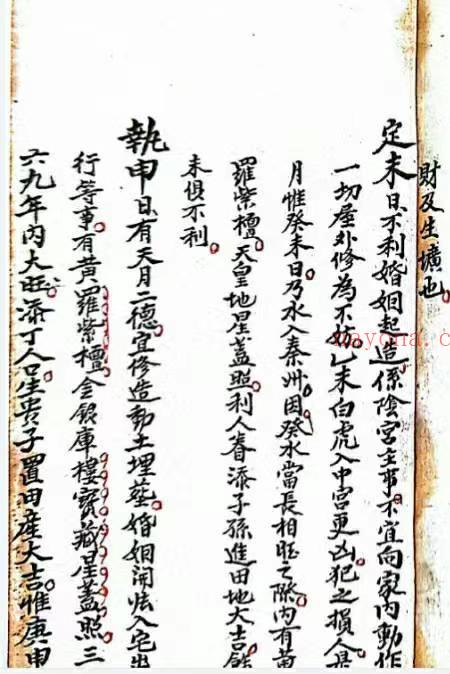 財及生壙也
定未日不利婚姻起造係陰宮主事不宜向家内動作
一切屋外修為不妨乙未白虎入中宮更凶犯之損人是
月惟癸未日乃水入秦州因癸水當長相旺之際内有黄
羅紫檀天皇地星蓋照利人眷添子孫進田地大吉餘
未俱不利
執申日有天月二德宜修造動土埋葬婚姻開張入宅出
行等事有黄羅紫檀金銀庫樓寶藏星蓋照三
六九年内大旺添丁人口生貴子置田産大吉惟庚申
nayona.c